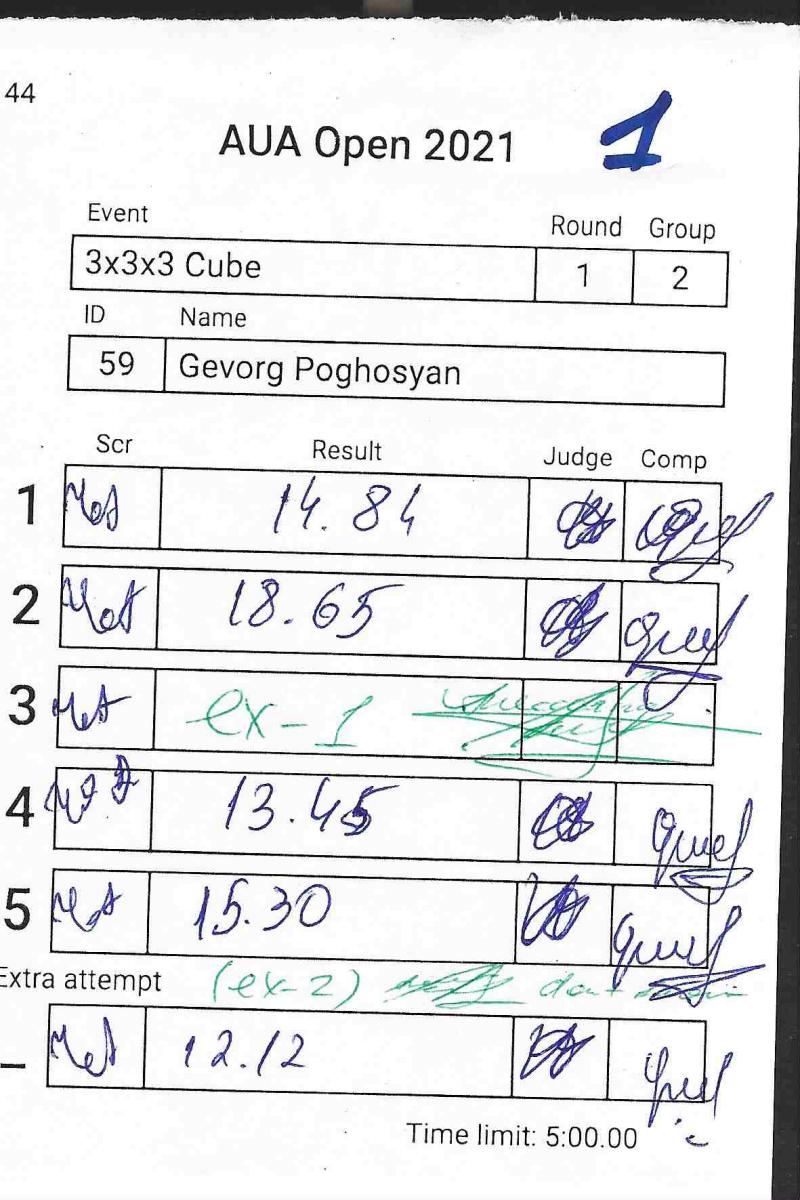 44
AUA Open 2021 1
Event Round Group
3x3x3 Cube 1 2
ID Name
59 Gevorg Poghosyan
Scr Result Judge Comp
1 14.84
2 18.65
3 ex-1
4 13.45
5 15.30
Extra attempt (ex-2)
_ 12.12
Time limit: 5:00.00